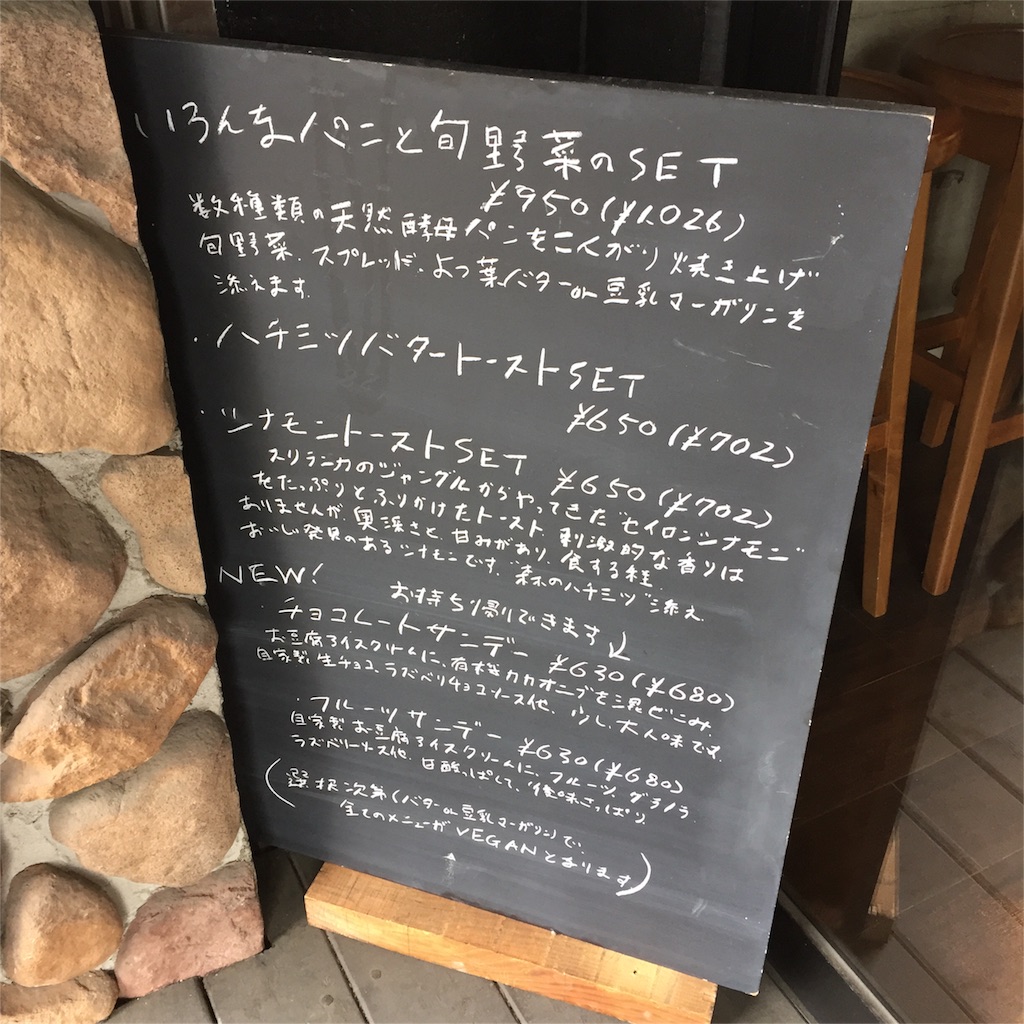 いろんなパンと旬野菜のSET
¥950(¥1.026)
数種類の天然酵母パンをこんがり焼き上げ
旬野菜、スプレッド、よつ葉バターor豆乳マーガリンを
添えます.
・ハチミツバタートーストSET
¥650(¥702)
・シナモントーストSET
¥650(¥702)
スリランカのジャングルからやってきた"セイロンシナモン"
をたっぷりとふりかけたトースト、刺激的な香りは
ありませんが、奥深さと、甘みがあり、食する程
おいしい発見のあるシナモンです."森のハチミツ"添え
NEW!
お持ち帰りできます
・チョコレートサンデー ¥630(¥680)
お豆腐アイスクリームに、有機カカオニブを混ぜこみ、
自家製生チョコ、ラズベリチョコソース他、少し大人味です
・フルーツサンデー ¥630(¥680)
自家製お豆腐アイスクリームに、フルーツ、グラノラ
ラズベリーソース他、甘酸っぱくて、後味さっぱり
(選択次第(バターor豆乳マーガリン)で、
全てのメニューがVEGANとなります)